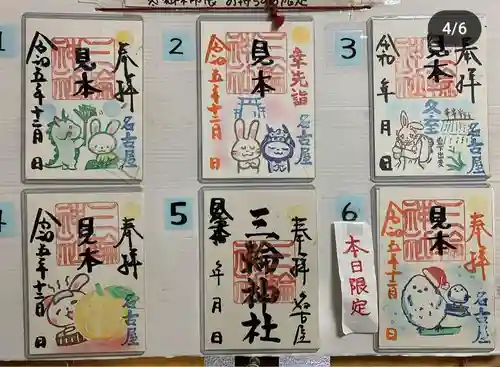 4/6
1
奉拝
見本
三輪神社
令和五年十二月 日
名古屋
2
幸先詣
見本
三輪神社
令和五年十二月 日
名古屋
3
奉拝
見本
三輪神社
令和 年 月 日
冬至
名古屋
4
奉拝
見本
三輪神社
令和五年十二月 日
名古屋
5
奉拝
名古屋
三輪神社
見本
年 月 日
6
本日限定
奉拝
見本
三輪神社
令和五年十二月 日
名古屋